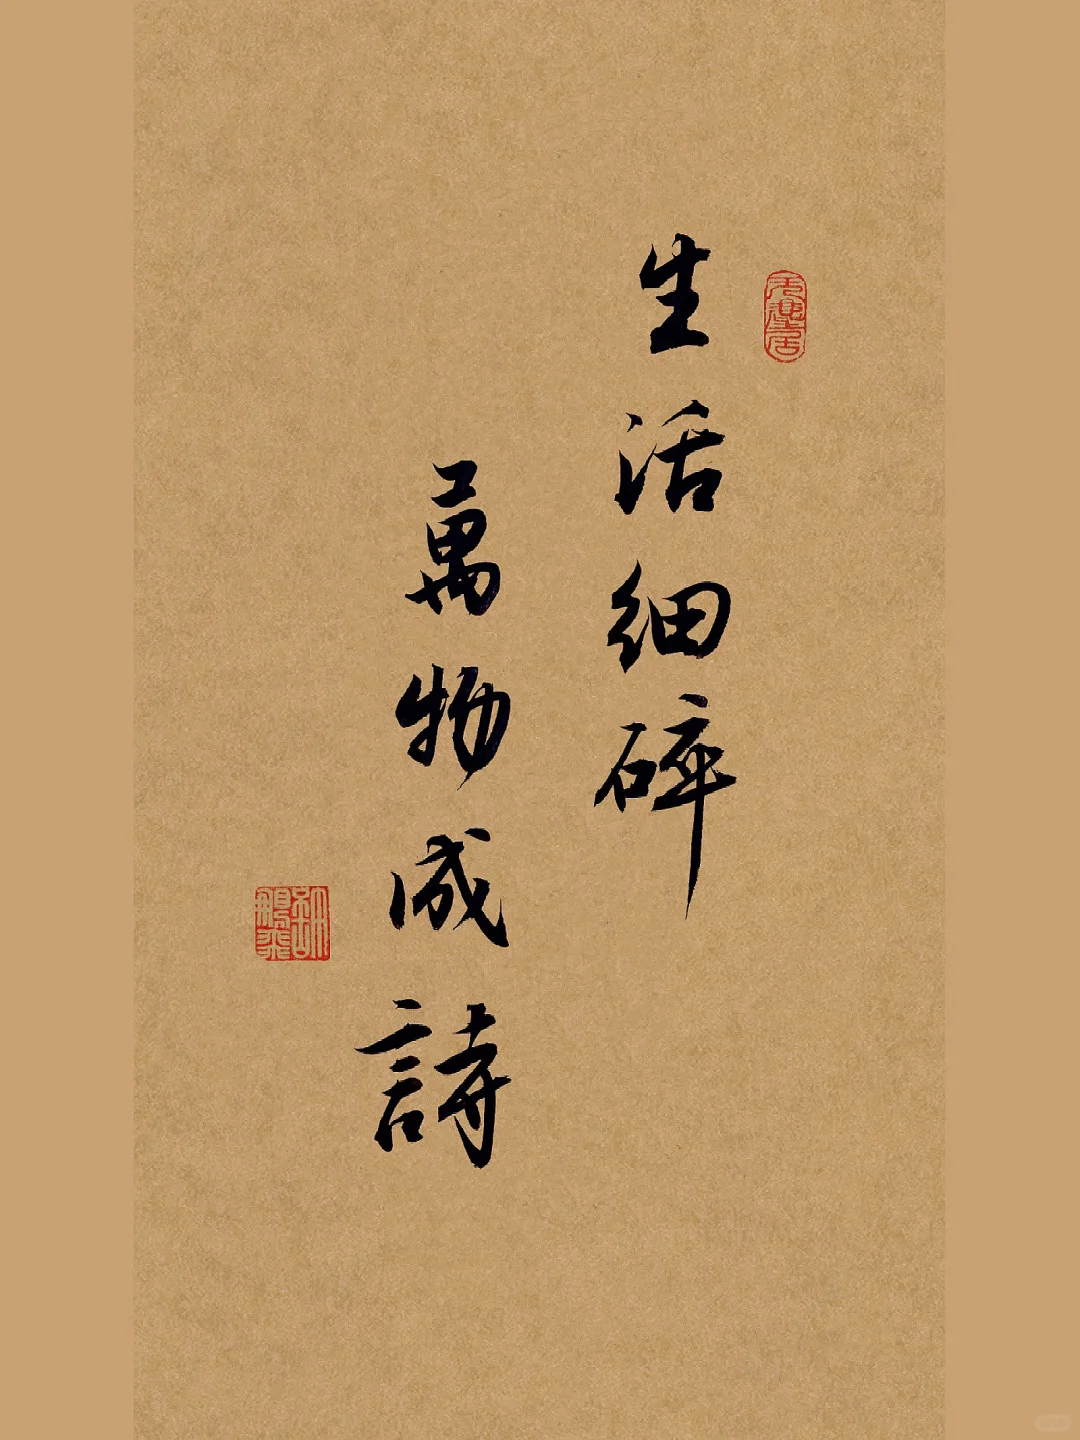 生活细碎
萬物成詩